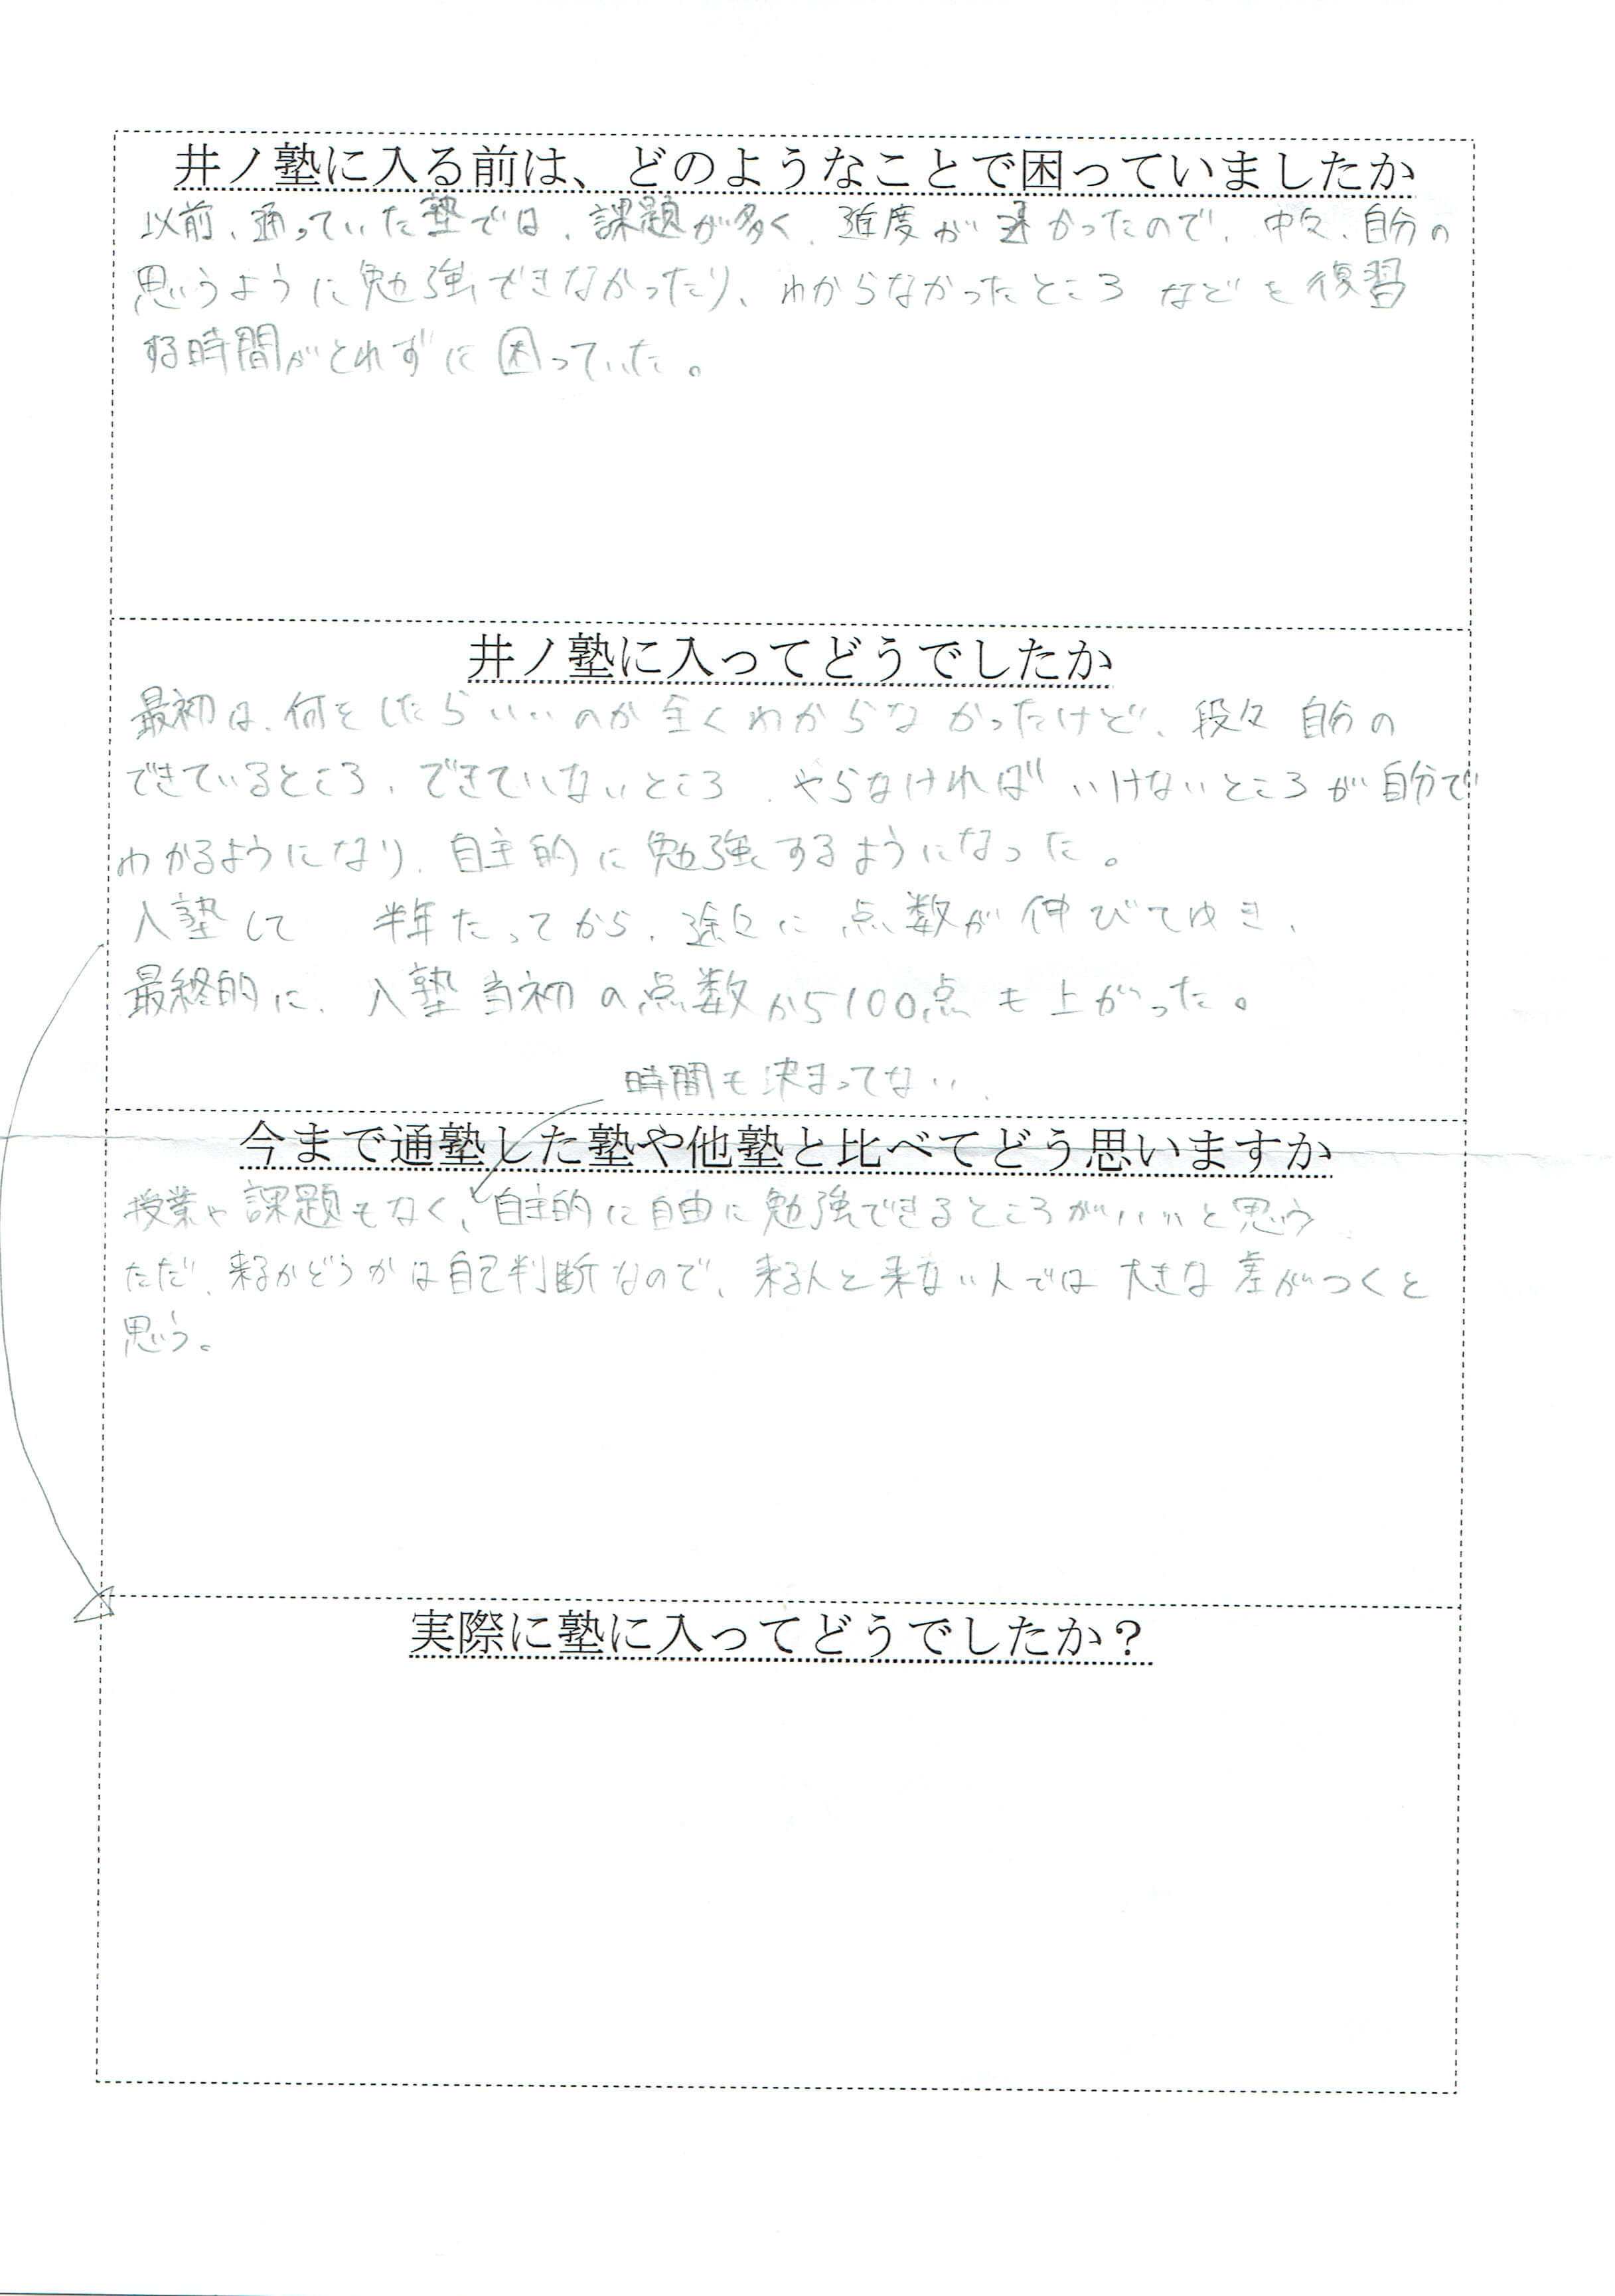 井ノ塾に入る前は、どのようなことで困っていましたか
以前、通っていた塾では、課題が多く、進度がかったので、中々、自分の
思うように勉強できなかったり、わからなかったところなどを復習
する時間がとれずに困っていた。
井ノ塾に入ってどうでしたか
最初は、何をしたらいいのか全くわからなかったけど、段々自分の
できているところ、できていないところ、やらなければいけないところが自分で
わかるようになり、自主的に勉強するようになった。
入塾して 半年たってから、徐々に点数が伸びてゆき、
最終的に、入塾当初の点数から100点も上がった。
時間も決まってない、
今まで通塾した塾や他塾と比べてどう思いますか
授業や課題もなく、自主的に自由に勉強できるところがいいと思う
ただ、来るかどうかは自己判断なので、来る人と来ない人では大きな差がつくと
思う。
実際に塾に入ってどうでしたか?